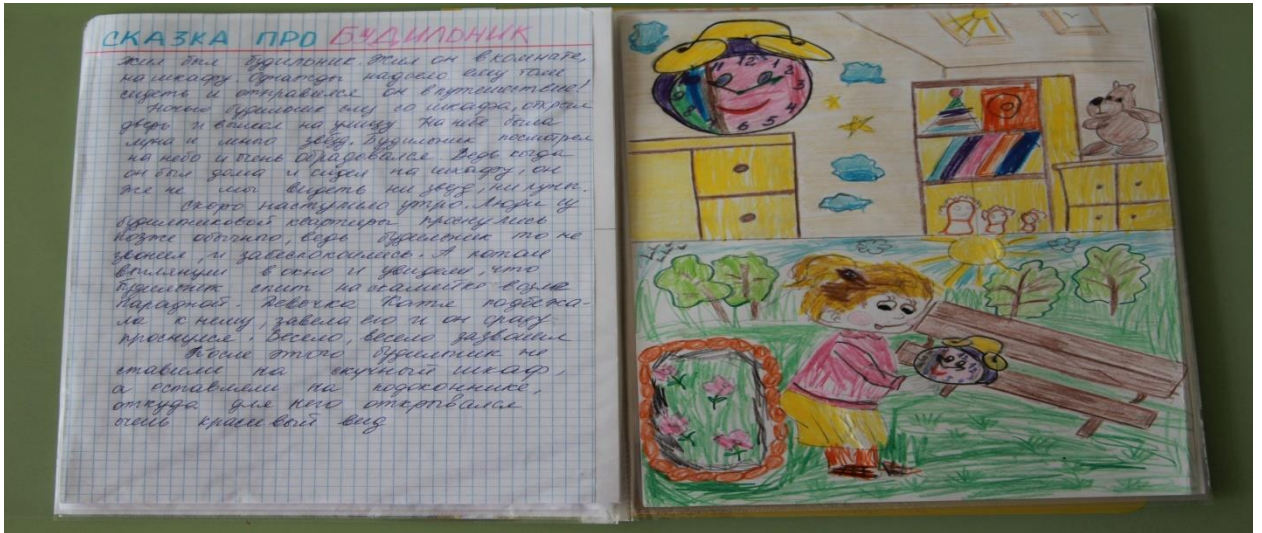 СКАЗКА ПРО БУДИЛЬНИК
Жил был будильник. Жил он в комнате,
на шкафу Однажды надоело ему там
сидеть и отправился он в путешествие!
Ночью будильник слез со шкафа, открыл
дверь и вышел на улицу На небе была
луна и много звёзд. Будильник посмотрел
на небо и очень обрадовался Ведь когда
он был дома и сидел на шкафу, он
же не мог видеть ни звёзд, ни луны.
Скоро наступило утро. Люди из
будильниковой квартиры проснулись
позже обычного, ведь будильник то не
звонил, и забеспокоились. А потом
выглянули в окно и увидели, что
будильник спит на скамейке возле
парадной. Девочка Катя подбежа-
ла к нему, завела его и он сразу
проснулся. Весело, весело зазвонил
После этого будильник не
ставили на скучный шкаф,
а оставляли на подоконнике,
откуда для него открывался
очень красивый вид
12
1
2
3
4
5
6
7
8